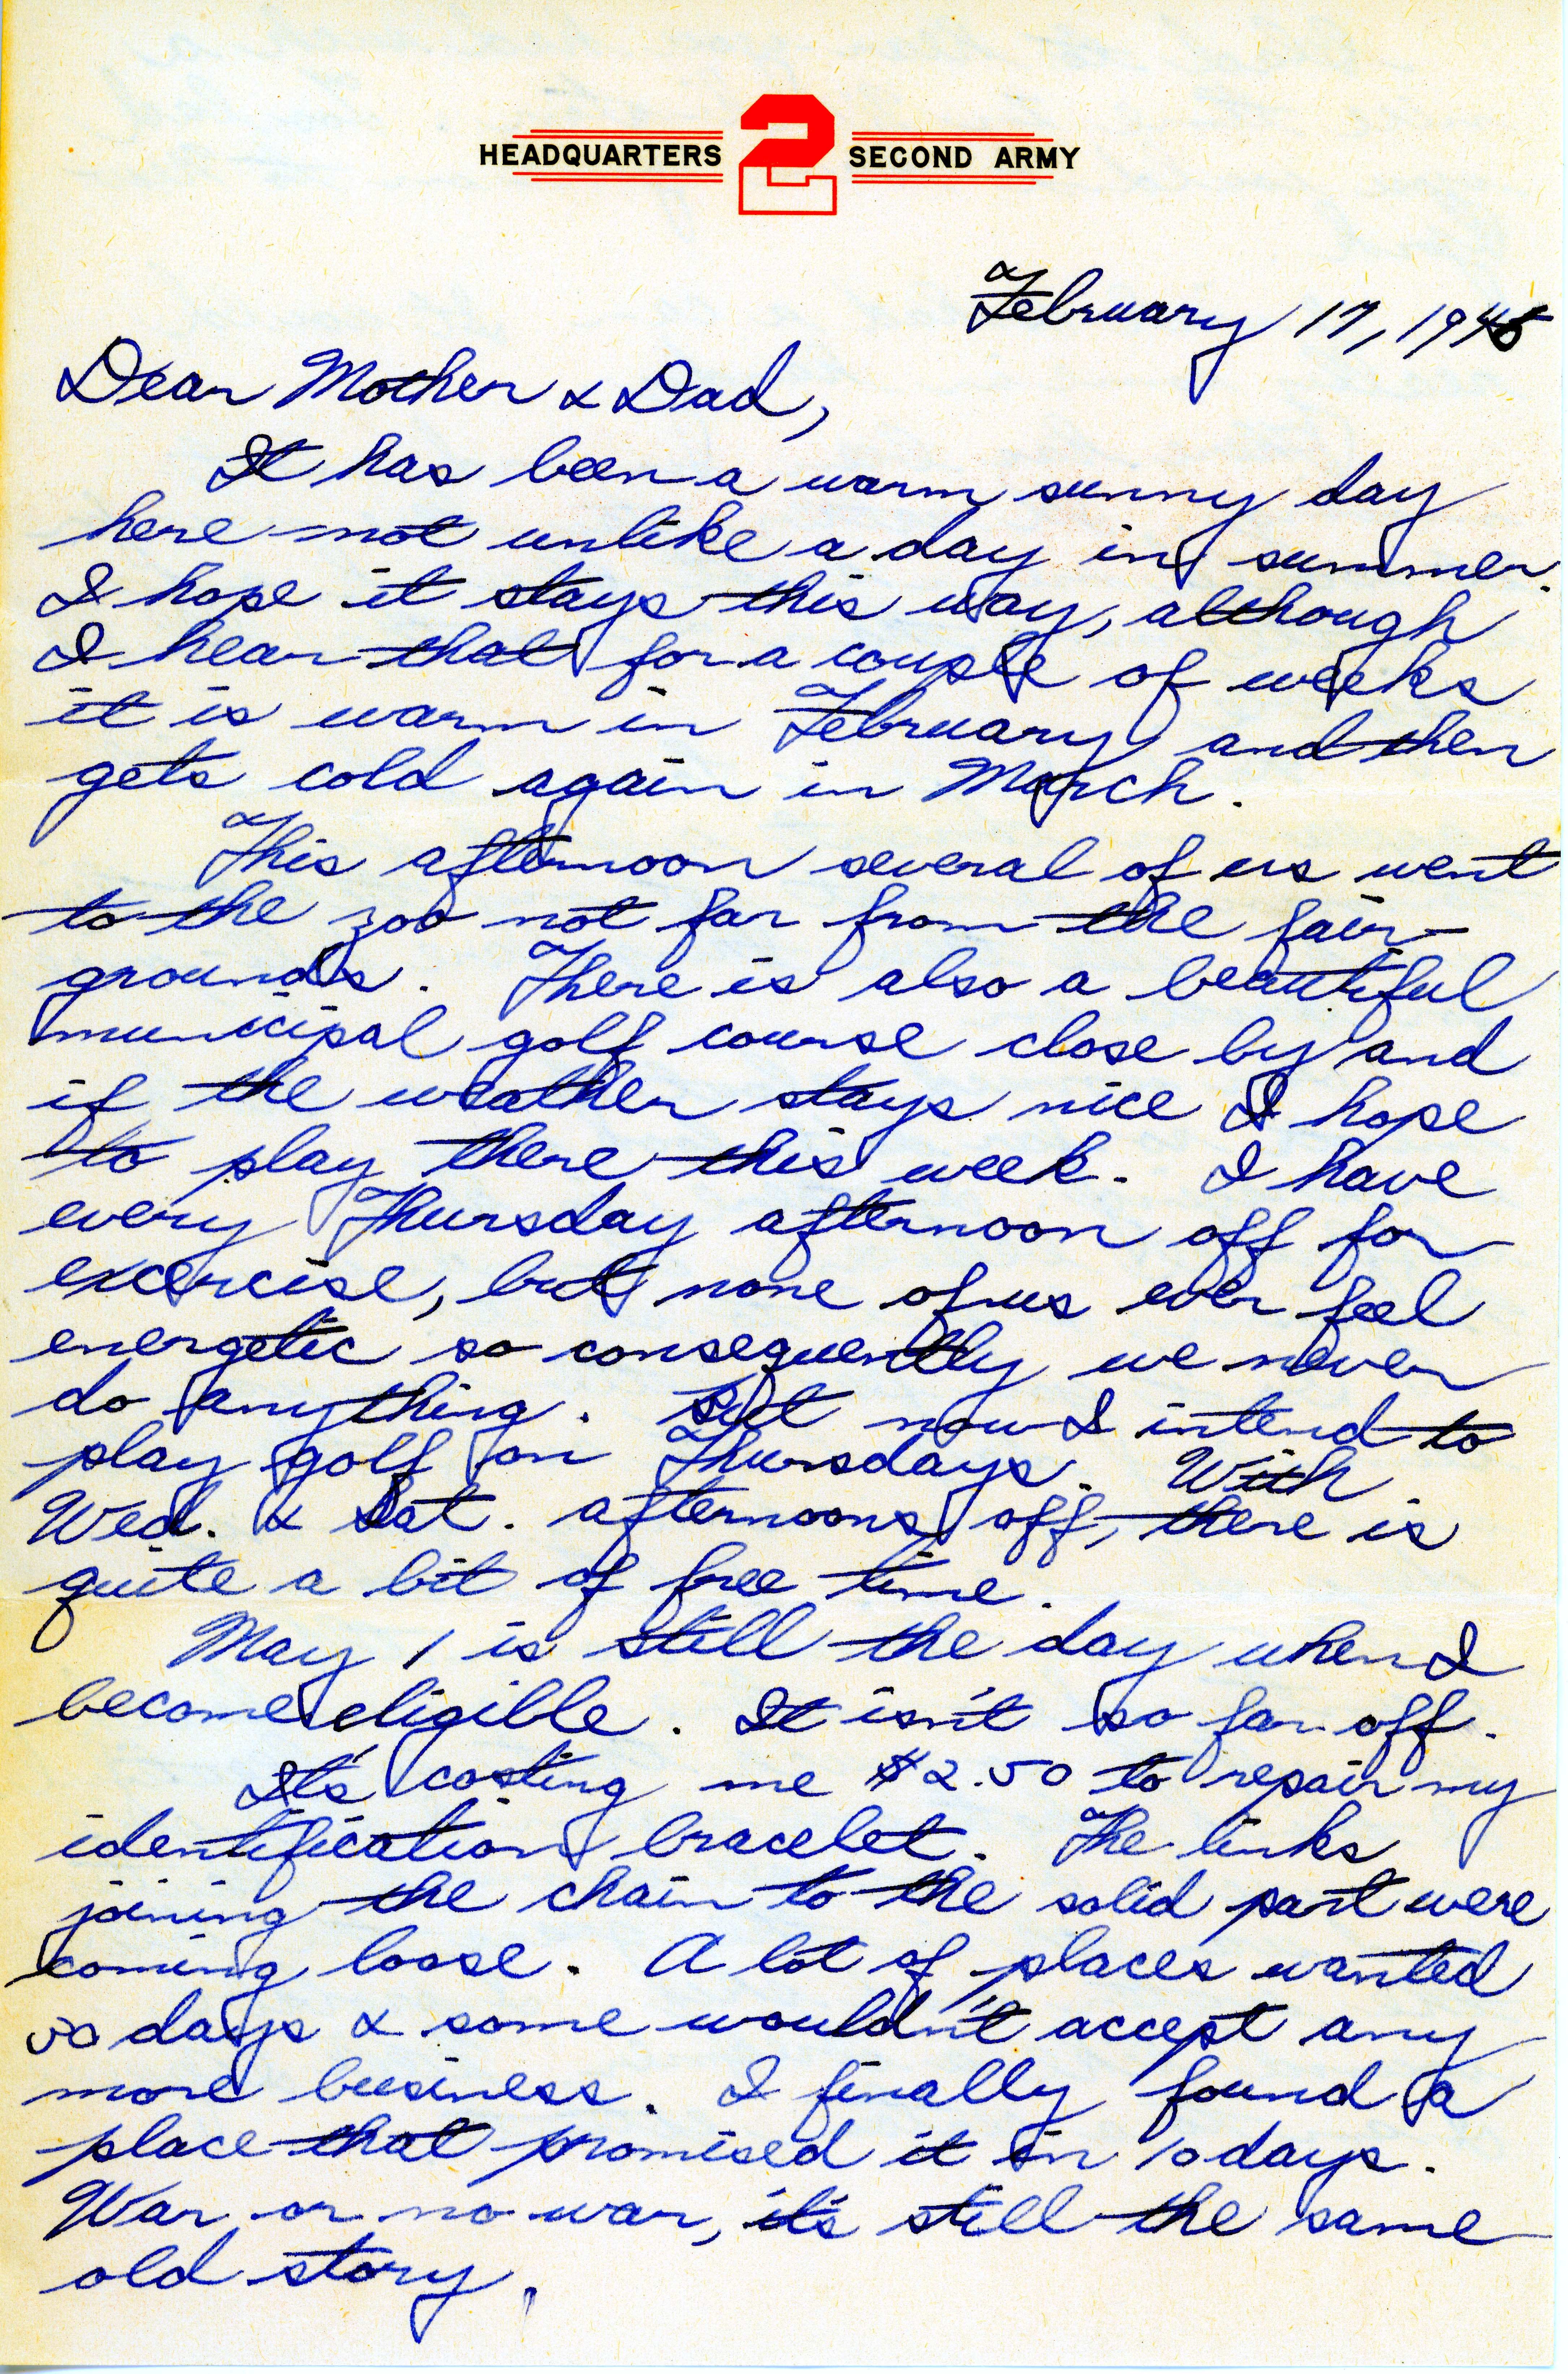 HEADQUARTERS 2 SECOND ARMY
February 17, 1946
Dear Mother & Dad,
It has been a warm sunny day
here not unlike a day in summer.
I hope it stays this way, although
I hear that for a couple of weeks
it is warm in February and then
gets cold again in March.
This afternoon several of us went
to the zoo not far from the fair-
grounds. There is also a beautiful
municipal golf course close by and
if the weather stays nice I hope
to play there this week. I have
every Thursday afternoon off for
excercise, but none of us ever feel
energetic so consequently we never
do anything. But now I intend to
play golf on Thursdays. With
Wed. & Sat. afternoons off, there is
quite a bit of free time.
May 1 is still the day when I
become eligible. It isn't so far off.
It's costing me $2.50 to repair my
identification bracelet. The links
joining the chain to the solid part were
coming loose. A lot of places wanted
50 days & some wouldn't accept any
more business. I finally found a
place that promised it in 10 days.
War or no war, it's still the same
old story.